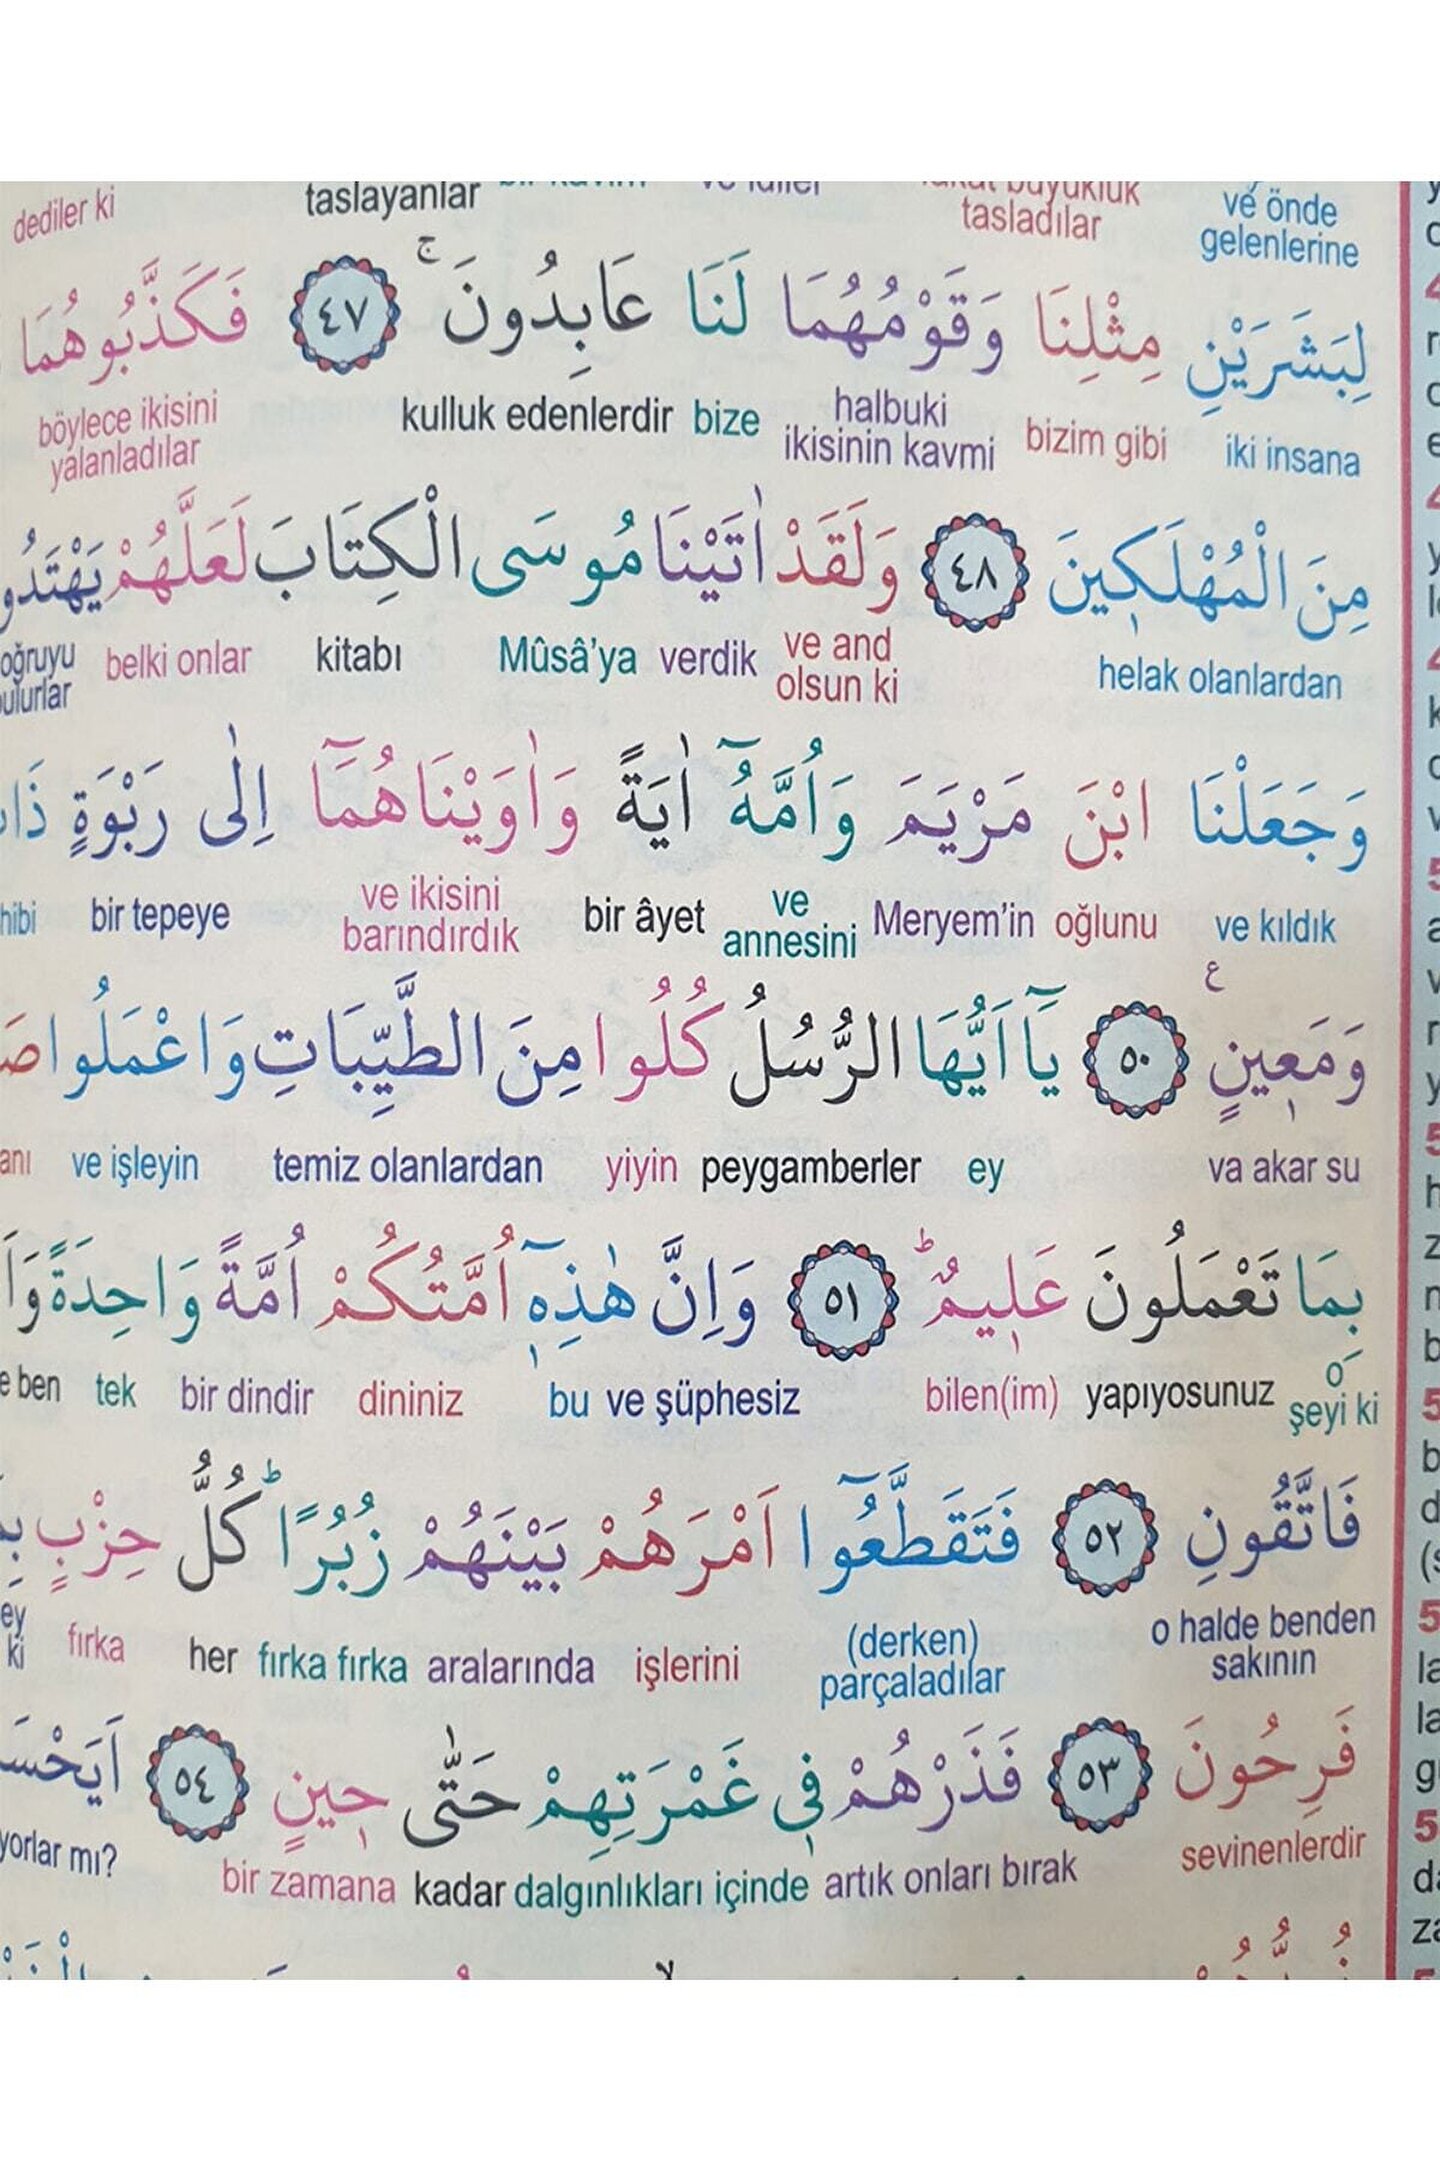 ve önde gelenlerine tasladılar taslayanlar dediler ki
لِبَشَرَيْنِ مِثْلِنَا وَقَوْمُهُمَا لَنَا عَابِدُونَۚ ﴿٤٧﴾ فَكَذَّبُوهُمَا
iki insana bizim gibi halbuki ikisinin kavmi bize kulluk edenlerdir böylece ikisini yalanladılar
مِنَ الْمُهْلَك۪ينَ ﴿٤٨﴾ وَلَقَدْ اٰتَيْنَا مُوسَى الْكِتَابَ لَعَلَّهُمْ
helak olanlardan ve and olsun ki verdik Mûsâ’ya kitabı belki onlar
وَجَعَلْنَا ابْنَ مَرْيَمَ وَاُمَّهُٓ اٰيَةً وَاٰوَيْنَاهُمَٓا اِلٰى رَبْوَةٍ
ve kıldık oğlunu Meryem’in ve annesini bir âyet ve ikisini barındırdık bir tepeye
وَمَع۪ينٍ۟ ﴿٥٠﴾ يَٓا اَيُّهَا الرُّسُلُ كُلُوا مِنَ الطَّيِّبَاتِ وَاعْمَلُوا
va akar su ey peygamberler yiyin temiz olanlardan ve işleyin
بِمَا تَعْمَلُونَ عَل۪يمٌۜ ﴿٥١﴾ وَاِنَّ هٰذِه۪ٓ اُمَّتُكُمْ اُمَّةً وَاحِدَةً
o şeyi ki yapıyosunuz bilen(im) ve şüphesiz bu dininiz bir dindir tek e ben
فَاتَّقُونِ ﴿٥٢﴾ فَتَقَطَّعُٓوا اَمْرَهُمْ بَيْنَهُمْ زُبُرًاۜ كُلُّ حِزْبٍ
o halde benden sakının (derken) parçaladılar işlerini aralarında fırka fırka her fırka
فَرِحُونَ ﴿٥٣﴾ فَذَرْهُمْ ف۪ي غَمْرَتِهِمْ حَتّٰى ح۪ينٍ ﴿٥٤﴾
sevinenlerdir artık onları bırak dalgınlıkları içinde kadar bir zamana yorlar mı?